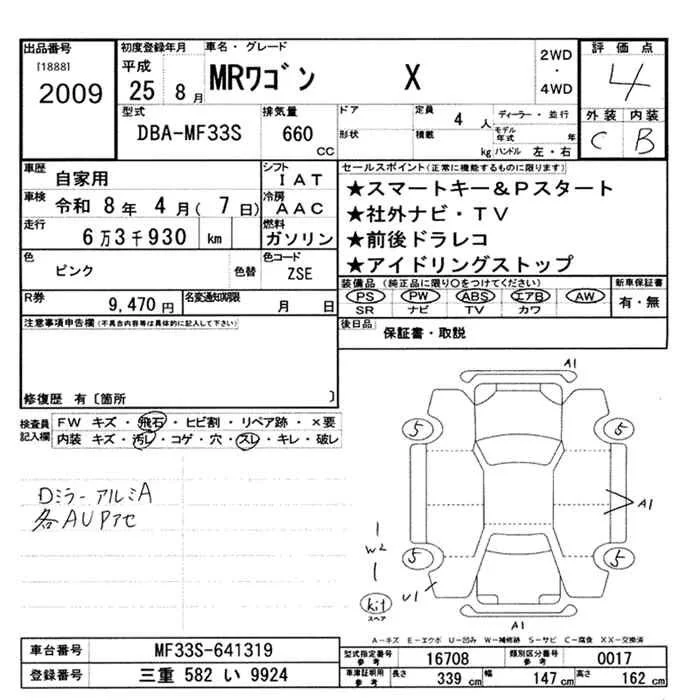 出品番号
[1888]
2009
初度登録年月
平成
25年 8月
車名・グレード
MRワゴン X
2WD
・
4WD
評価点
4
外装 内装
C B
型式
DBA-MF33S
排気量
660
CC
ドア
形状
定員
4 人
積載
kg
ディーラー・並行
モデル年式 年
ハンドル 左・右
車歴
自家用
シフト
IAT
車検
令和 8年 4月( 7日)
冷房
AAC
走行
6万3千930 km
燃料
ガソリン
色
ピンク
色替
色コード
ZSE
R券
9,470円
名変通知期限
月 日
セールスポイント(正常に機能するものに限ります)
★スマートキー&Pスタート
★社外ナビ・TV
★前後ドラレコ
★アイドリングストップ
装備品(純正品に限り○をつけてください)
PS PW ABS エアB AW
SR ナビ TV カワ
新車保証書
有・無
後日品
保証書・取説
注意事項申告欄(不具合内容等は具体的に記入して下さい)
修復歴 有〔箇所 〕
検査員
記入欄
FW キズ・飛石・ヒビ割・リペア跡・×要
内装 キズ・汚レ・コゲ・穴・スレ・キレ・破レ
Dミラーアルミ A
各AUPアセ
A1
5
5
A1
W2
5
5
U1
kit
スペア
A1
A-キズ E-エクボ U-凹み W-補修跡 S-サビ C-腐食 XX-交換済
車台番号
MF33S-641319
登録番号
三重 582 い 9924
型式指定番号
参考
16708
類別区分番号
参考
0017
車庫証明用
参考
長さ
339 cm
幅
147 cm
高さ
162 cm